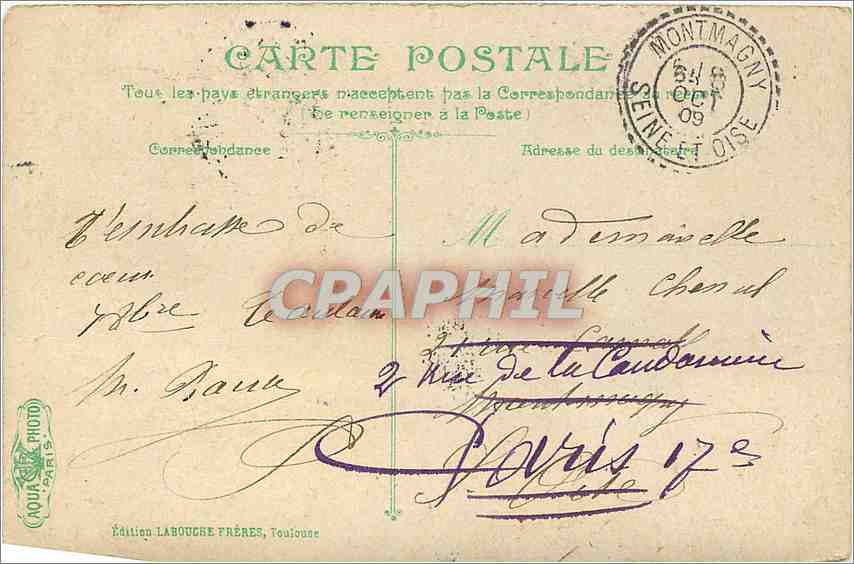 CARTE POSTALE
Tous les pays étrangers n'acceptent pas la Correspondance au recto
(Se renseigner à la Poste)
MONTMAGNY
OCT
09
SEINE-ET-OISE
Correspondance
Adresse du destinataire
T'embrasse de
cœur
Mademoiselle
8bre
Marcelle
21 rue
2 rue de la Condamine
M.
Montmagny
Paris 17e
S. Oise
CPAPHIL
AQUA PHOTO
PARIS
Édition LABOUCHE FRÈRES, Toulouse